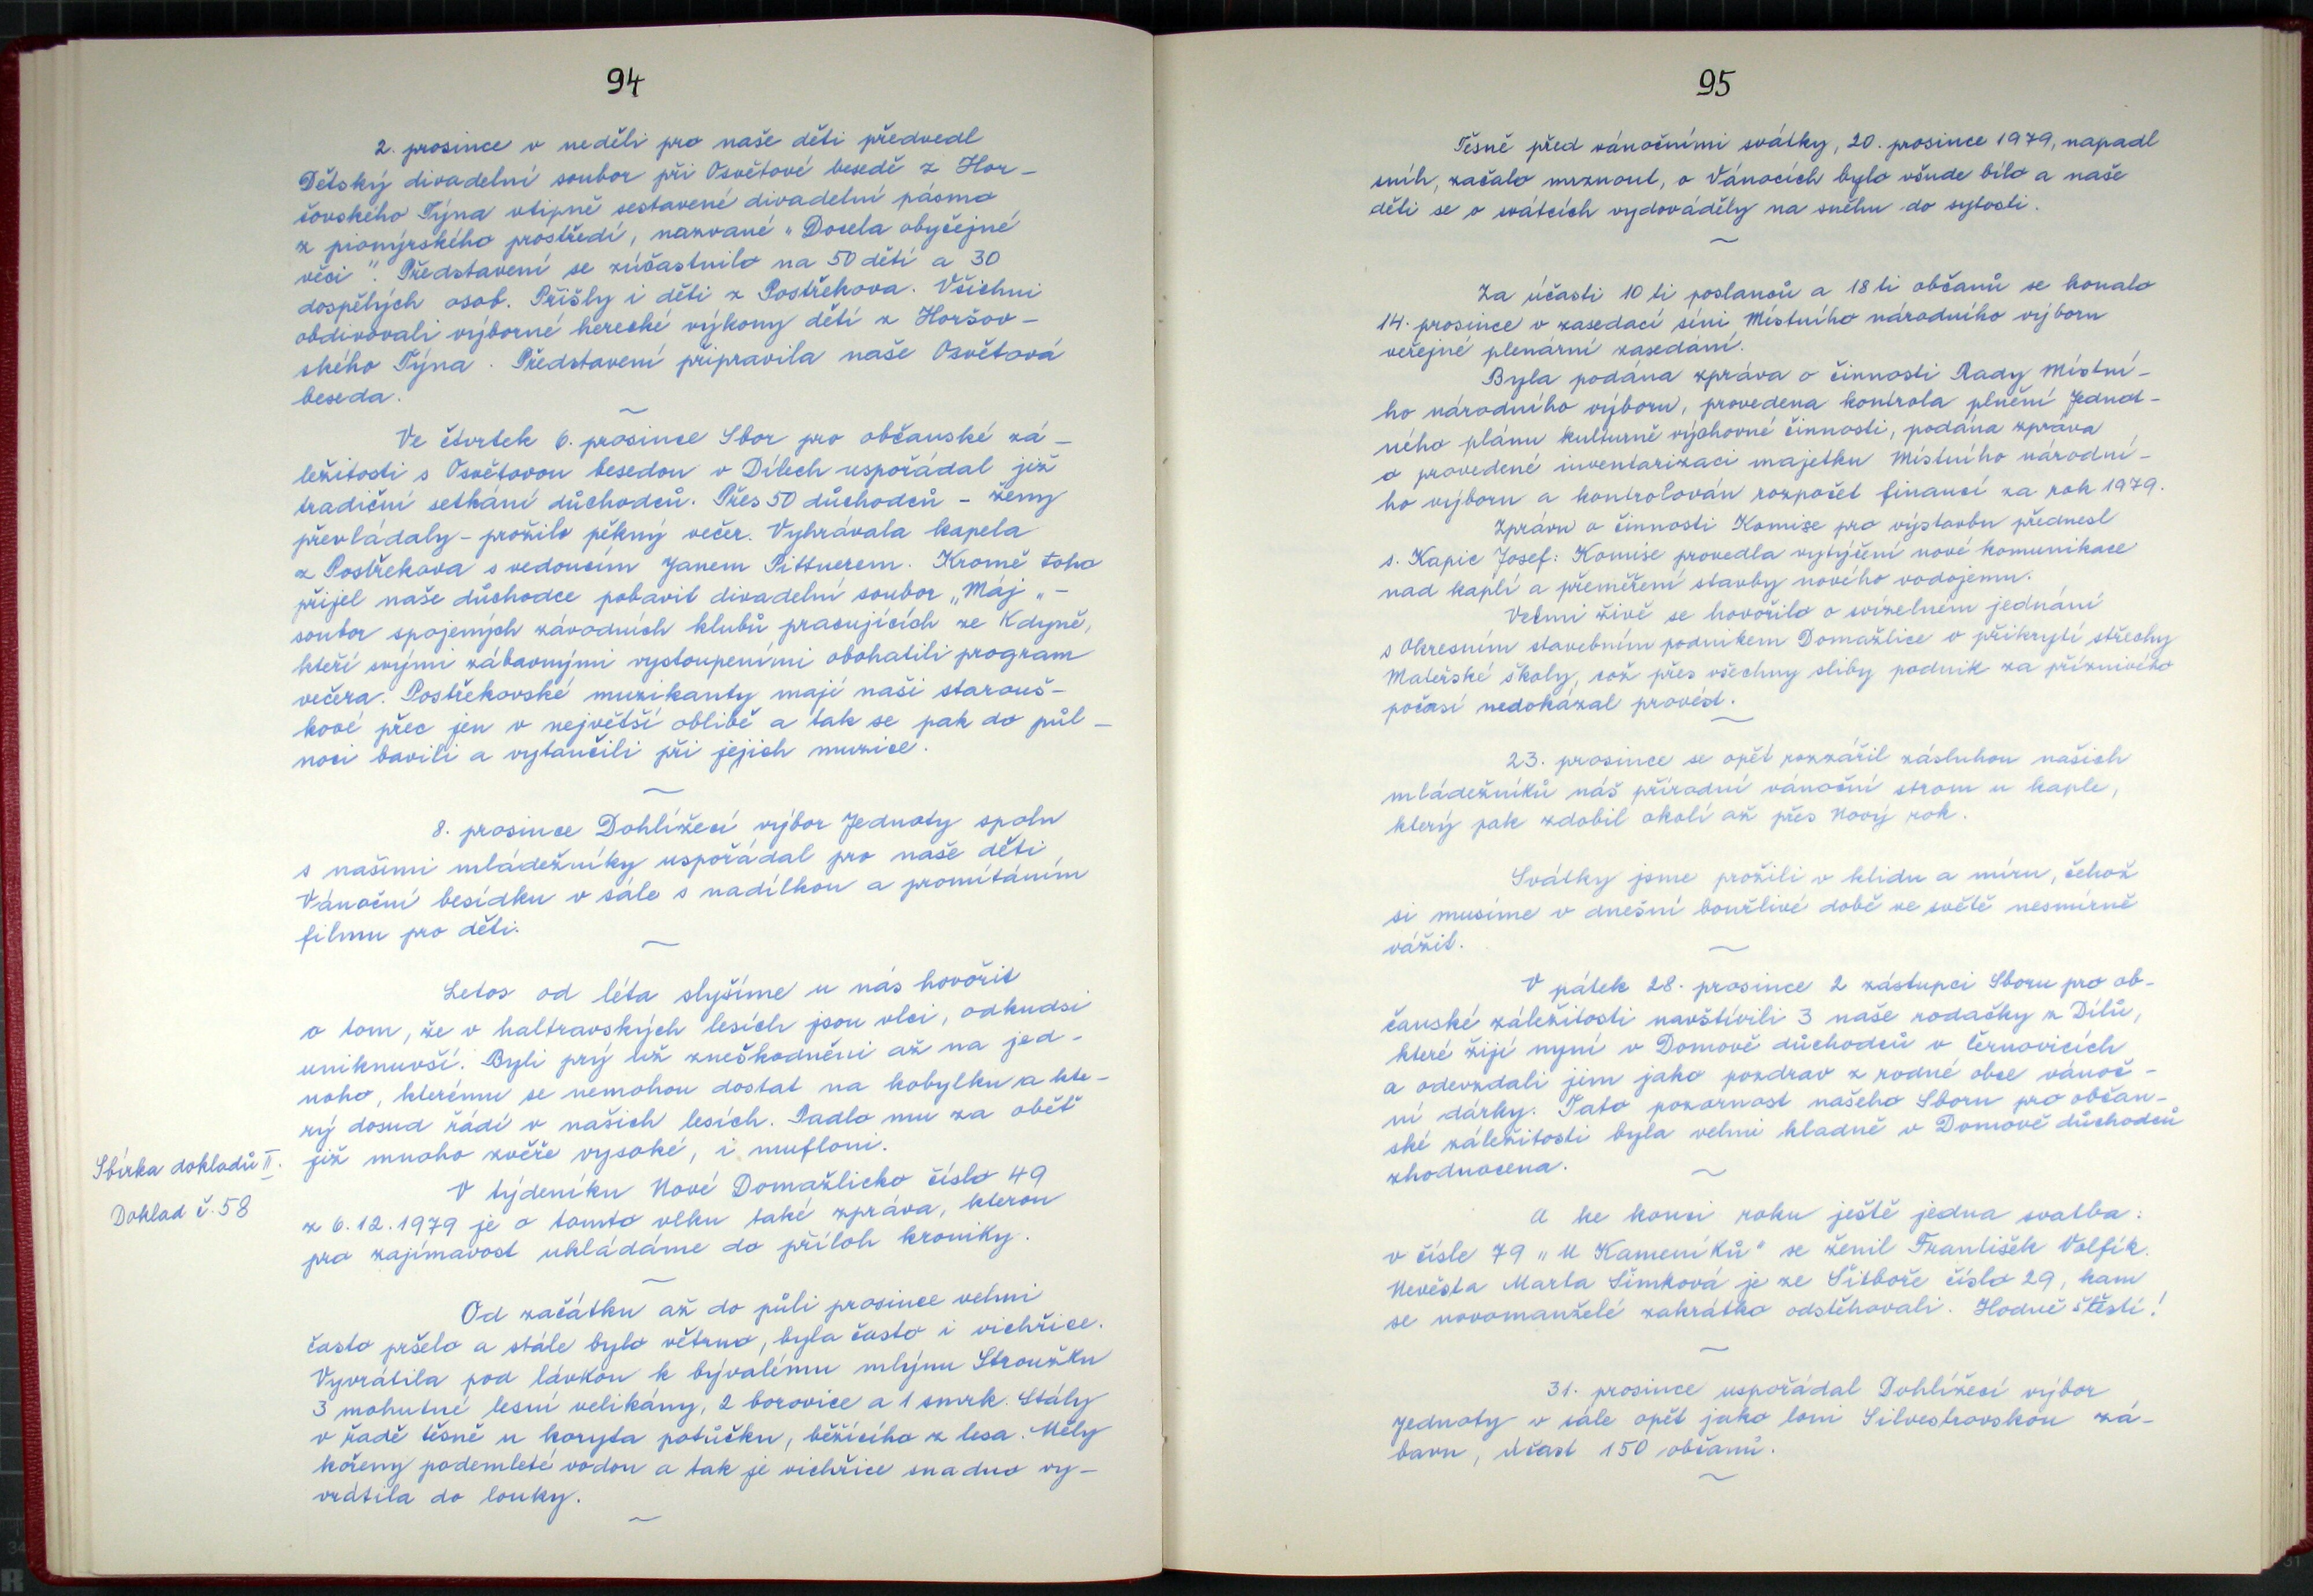 94
2. prosince v neděli pro naše děti předvedl
Dětský divadelní soubor při Osvětové besedě z Hor-
šovského Týna vtipně sestavené divadelní pásmo
z pionýrského prostředí, nazvané „Docela obyčejné
věci". Představení se zúčastnilo na 50 dětí a 30
dospělých osob. Přišly i děti z Postřekova. Všichni
obdivovali výborné herecké výkony dětí z Horšov-
ského Týna. Představení připravila naše Osvětová
beseda.
~
Ve čtvrtek 6. prosince Sbor pro občanské zá-
ležitosti s Osvětovou besedou v Dílech uspořádal již
tradiční setkání důchodců. Přes 50 důchodců - ženy
převládaly - prožilo pěkný večer. Vyhrávala kapela
z Postřekova s vedoucím Janem Pittnerem. Kromě toho
přijel naše důchodce pobavit divadelní soubor „Máj„ -
soubor spojených závodních klubů pracujících ze Kdyně,
kteří svými zábavnými vystoupeními obohatili program
večera. Postřekovské muzikanty mají naši starouš-
kové přec jen v největší oblibě a tak se pak do půl-
noci bavili a vytančili při jejich muzice.
~
8. prosince Dohlížecí výbor Jednoty spolu
s našimi mládežníky uspořádal pro naše děti
Vánoční besídku v sále s nadílkou a promítáním
filmu pro děti.
~
Letos od léta slyšíme u nás hovořit
o tom, že v haltravských lesích jsou vlci, odkudsi
uniknuvší. Byli prý už zneškodněni až na jed-
noho, kterému se nemohou dostat na kobylku a kte-
rý dosud řádí v našich lesích. Padlo mu za oběť
již mnoho zvěře vysoké, i mufloni.
Sbírka dokladů II.
Doklad č. 58
V týdeníku Nové Domažlicko číslo 49
z 6.12.1979 je o tomto vlku také zpráva, kterou
pro zajímavost ukládáme do příloh kroniky.
~
Od začátku až do půli prosince velmi
často pršelo a stále bylo větrno, byla často i vichřice.
Vyvrátila pod lávkou k bývalému mlýnu Stroužku
3 mohutné lesní velikány, 2 borovice a 1 smrk. Stály
v řadě těsně u koryta potůčku, běžícího z lesa. Měly
kořeny podemleté vodou a tak je vichřice snadno vy-
vrátila do louky.
~
95
Těsně před vánočními svátky, 20. prosince 1979, napadl
sníh, začalo mrznout, o Vánocích bylo všude bílo a naše
děti se o svátcích vydováděly na sněhu do sytosti.
~
Za účasti 10 ti poslanců a 18 ti občanů se konalo
14. prosince v zasedací síni Místního národního výboru
veřejné plenární zasedání.
Byla podána zpráva o činnosti Rady Místní-
ho národního výboru, provedena kontrola plnění Jednot-
ného plánu kulturně výchovné činnosti, podána zpráva
o provedené inventarizaci majetku Místního národní-
ho výboru a kontrolován rozpočet financí za rok 1979.
Zprávu o činnosti Komise pro výstavbu přednesl
s. Kapic Josef: Komise provedla vytýčení nové komunikace
nad kaplí a přeměření stavby nového vodojemu.
Velmi živě se hovořilo o svízelném jednání
s Okresním stavebním podnikem Domažlice o přikrytí střechy
Mateřské školy, což přes všechny sliby podnik za příznivého
počasí nedokázal provést.
~
23. prosince se opět rozzářil zásluhou našich
mládežníků náš přírodní vánoční strom u kaple,
který pak zdobil okolí až přes Nový rok.
Svátky jsme prožili v klidu a míru, čehož
si musíme v dnešní bouřlivé době ve světě nesmírně
vážit.
~
V pátek 28. prosince 2 zástupci Sboru pro ob-
čanské záležitosti navštívili 3 naše rodačky z Dílů,
které žijí nyní v Domově důchodců v Černovicích
a odevzdali jim jako pozdrav z rodné obce vánoč-
ní dárky. Tato pozornost našeho Sboru pro občan-
ské záležitosti byla velmi kladně v Domově důchodců
zhodnocena.
~
A ke konci roku ještě jedna svatba:
v čísle 79 „U Kameníků" se ženil František Volfík.
Nevěsta Marta Šimková je ze Šitboře číslo 29, kam
se novomanželé zakrátko odstěhovali. Hodně štěstí!
~
31. prosince uspořádal Dohlížecí výbor
Jednoty v sále opět jako loni Silvestrovskou zá-
bavu, účast 150 občanů.
~